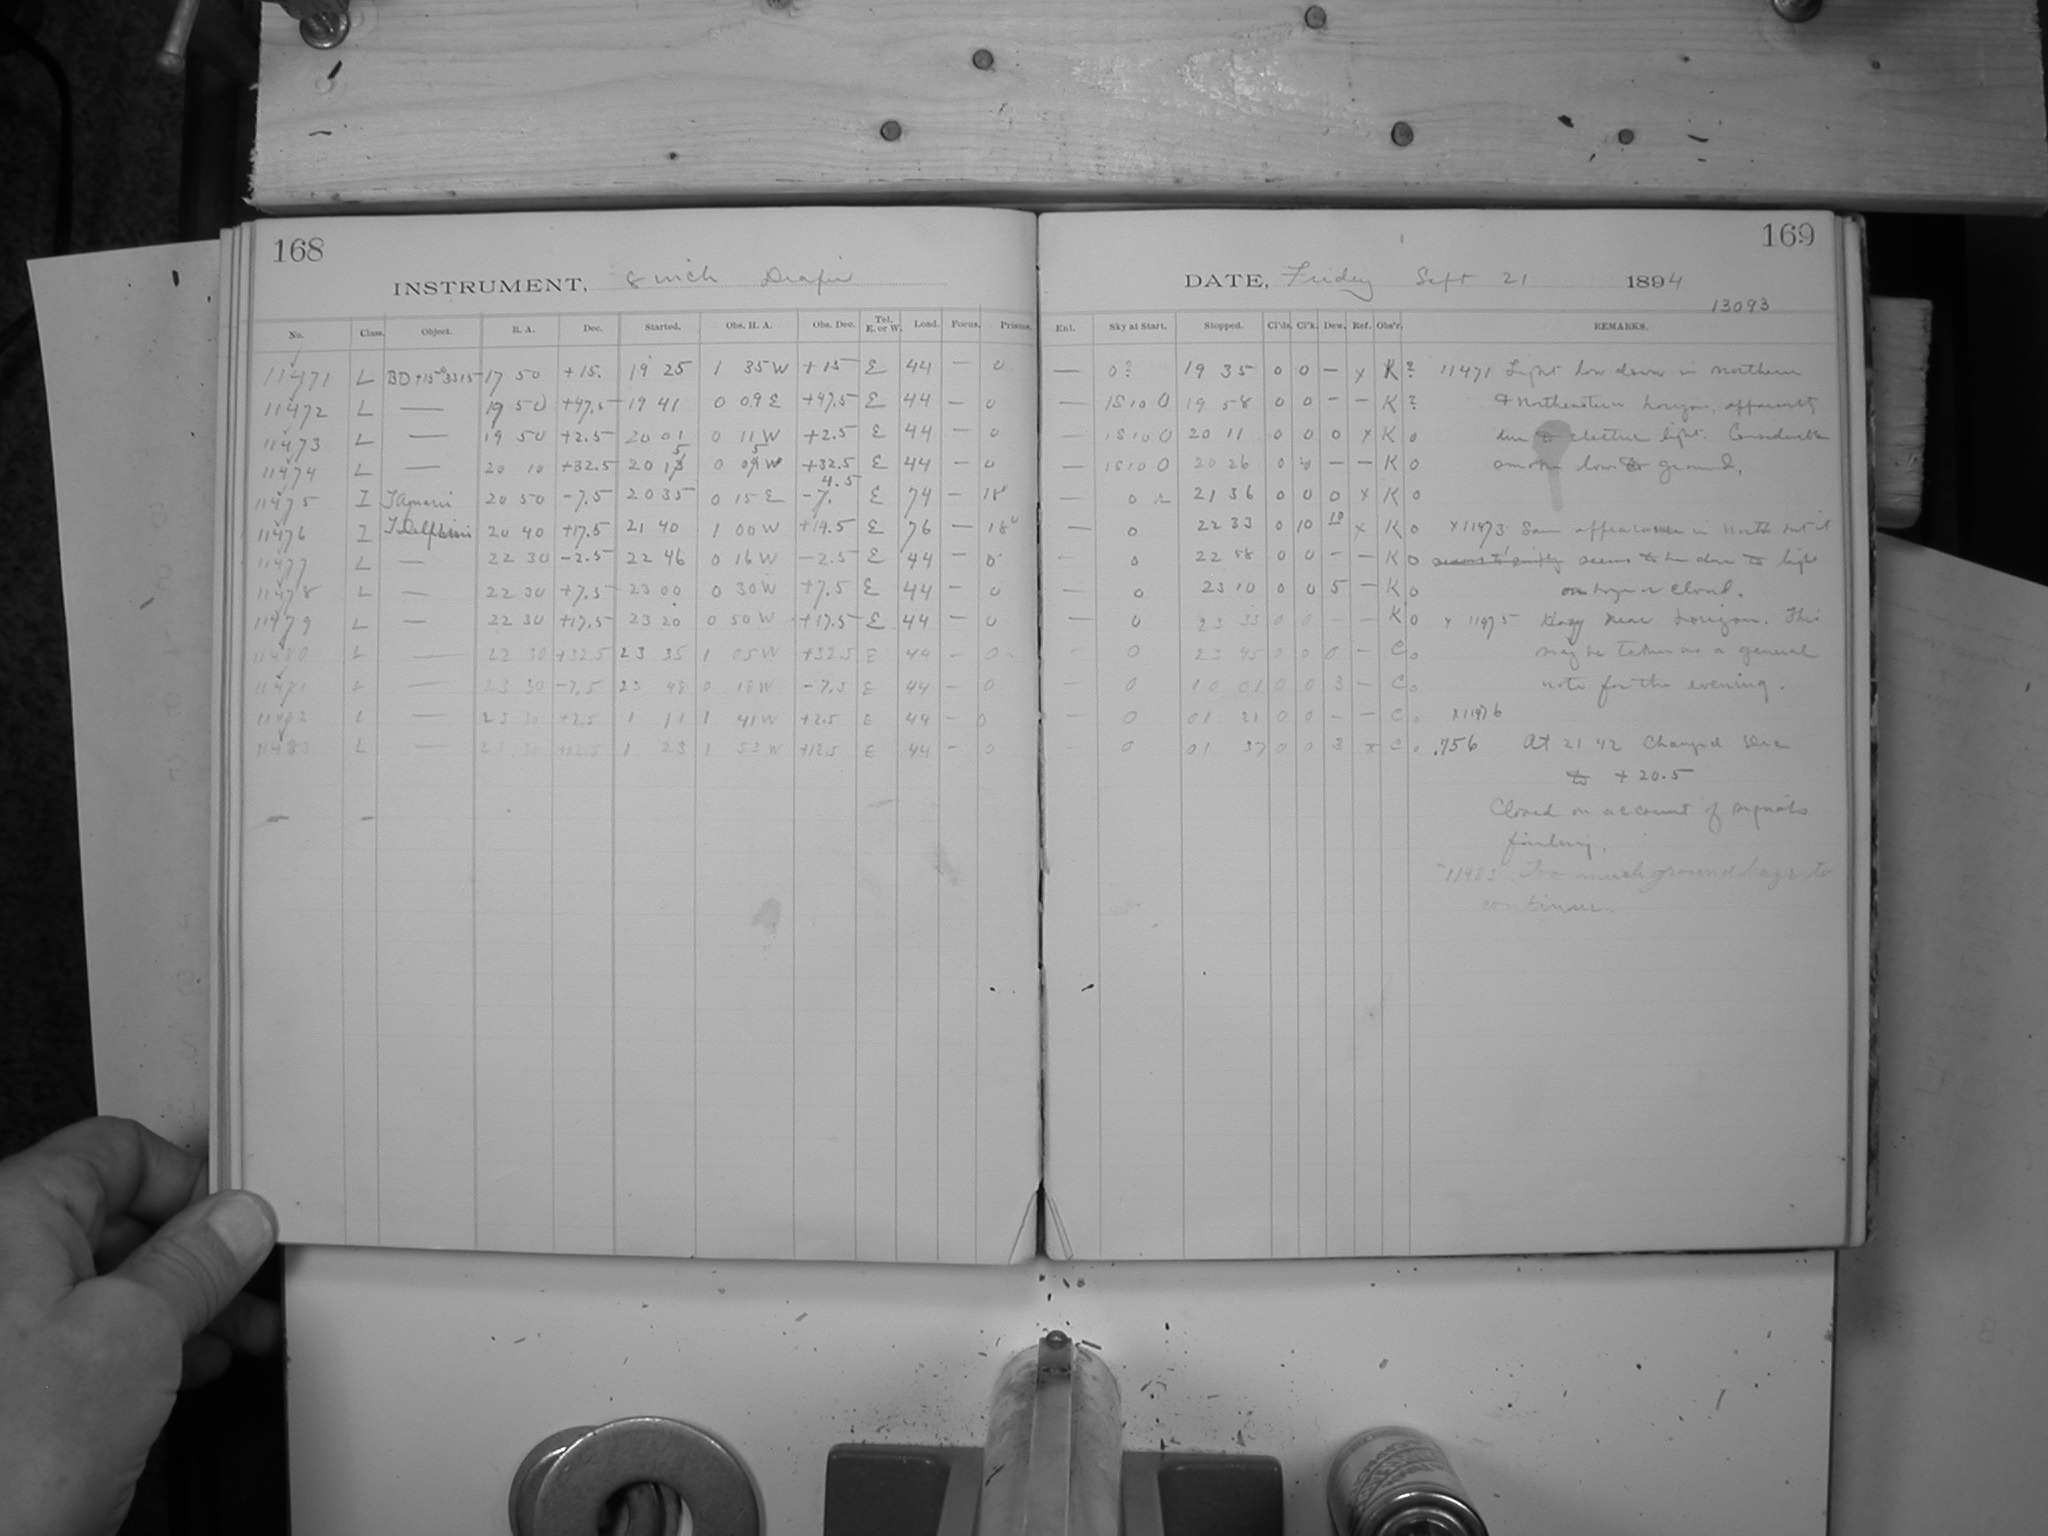 168
INSTRUMENT, 8 inch Draper
No. Class. Object. R. A. Dec. Started. Obs. H. A. Obs. Dec. Tel. E. or W. Load. Focus. Prisms.
11471 L BD +15°3315 17 50 +15. 19 25 1 35 W +15 E 44 — 0
11472 L — 19 50 +47.5 19 41 0 09 E +47.5 E 44 — 0
11473 L — 19 50 +2.5 20 01 0 11 W +2.5 E 44 — 0
11474 L — 20 10 +32.5 20 15 0 05 W +32.5 E 44 — 0
11475 I T Aquarii 20 50 -7.5 20 35 0 15 E -4.5 E 74 — 18
11476 I T Delphini 20 40 +17.5 21 40 1 00 W +19.5 E 76 — 18
11477 L — 22 30 -2.5 22 46 0 16 W -2.5 E 44 — 0
11478 L — 22 30 +7.5 23 00 0 30 W +7.5 E 44 — 0
11479 L — 22 30 +17.5 23 20 0 50 W +17.5 E 44 — 0
11480 L — 22 30 +32.5 23 35 1 05 W +32.5 E 44 — 0
11481 L — 23 30 -7.5 23 48 0 18 W -7.5 E 44 — 0
11482 L — 23 30 +2.5 1 11 1 41 W +2.5 E 44 — 0
11483 L — 23 30 +12.5 1 23 1 53 W +12.5 E 44 — 0
— —
169
DATE, Friday Sept 21 1894
13093
Enl. Sky at Start. Stopped. Cl'ds. Cl'k. Dew. Ref. Obs'r. REMARKS.
— 0? 19 35 0 0 — x K ? 11471 Light low down in northern
— 1S10 0 19 58 0 0 — — K ? & Northeastern horizon, apparently
— 1S10 0 20 11 0 0 0 x K 0 due to electric light. Considerable
— 1S10 0 20 26 0 0 — — K 0 smoke low to ground.
— 0 21 36 0 0 0 x K 0
— 0 22 33 0 10 10 x K 0 x11473 Same appearance in North but it
— 0 22 58 0 0 — — K 0 seems to be due to light
— 0 23 10 0 0 5 — K 0 on haze or cloud.
— 0 23 33 0 0 — — K 0 x 11475 Hazy near horizon. This
— 0 23 45 0 0 0 — C 0 may be taken as a general
— 0 1 0 01 0 0 3 — C 0 note for the evening.
— 0 01 21 0 0 — — C 0 x11476
— 0 01 37 0 0 3 x C 0 .756 At 21 42 Changed Dec
to + 20.5
Closed on account of signals
failing.
11483 Too much ground haze to
continue.